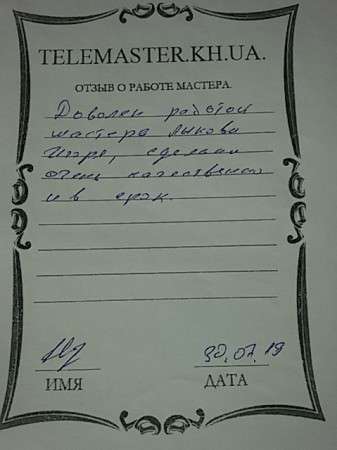 TELEMASTER.KH.UA.
ОТЗЫВ О РАБОТЕ МАСТЕРА.
Доволен работой
мастера Лыкова
Игоря, сделали
очень качественно
и в срок.
30.07.19
ИМЯ ДАТА